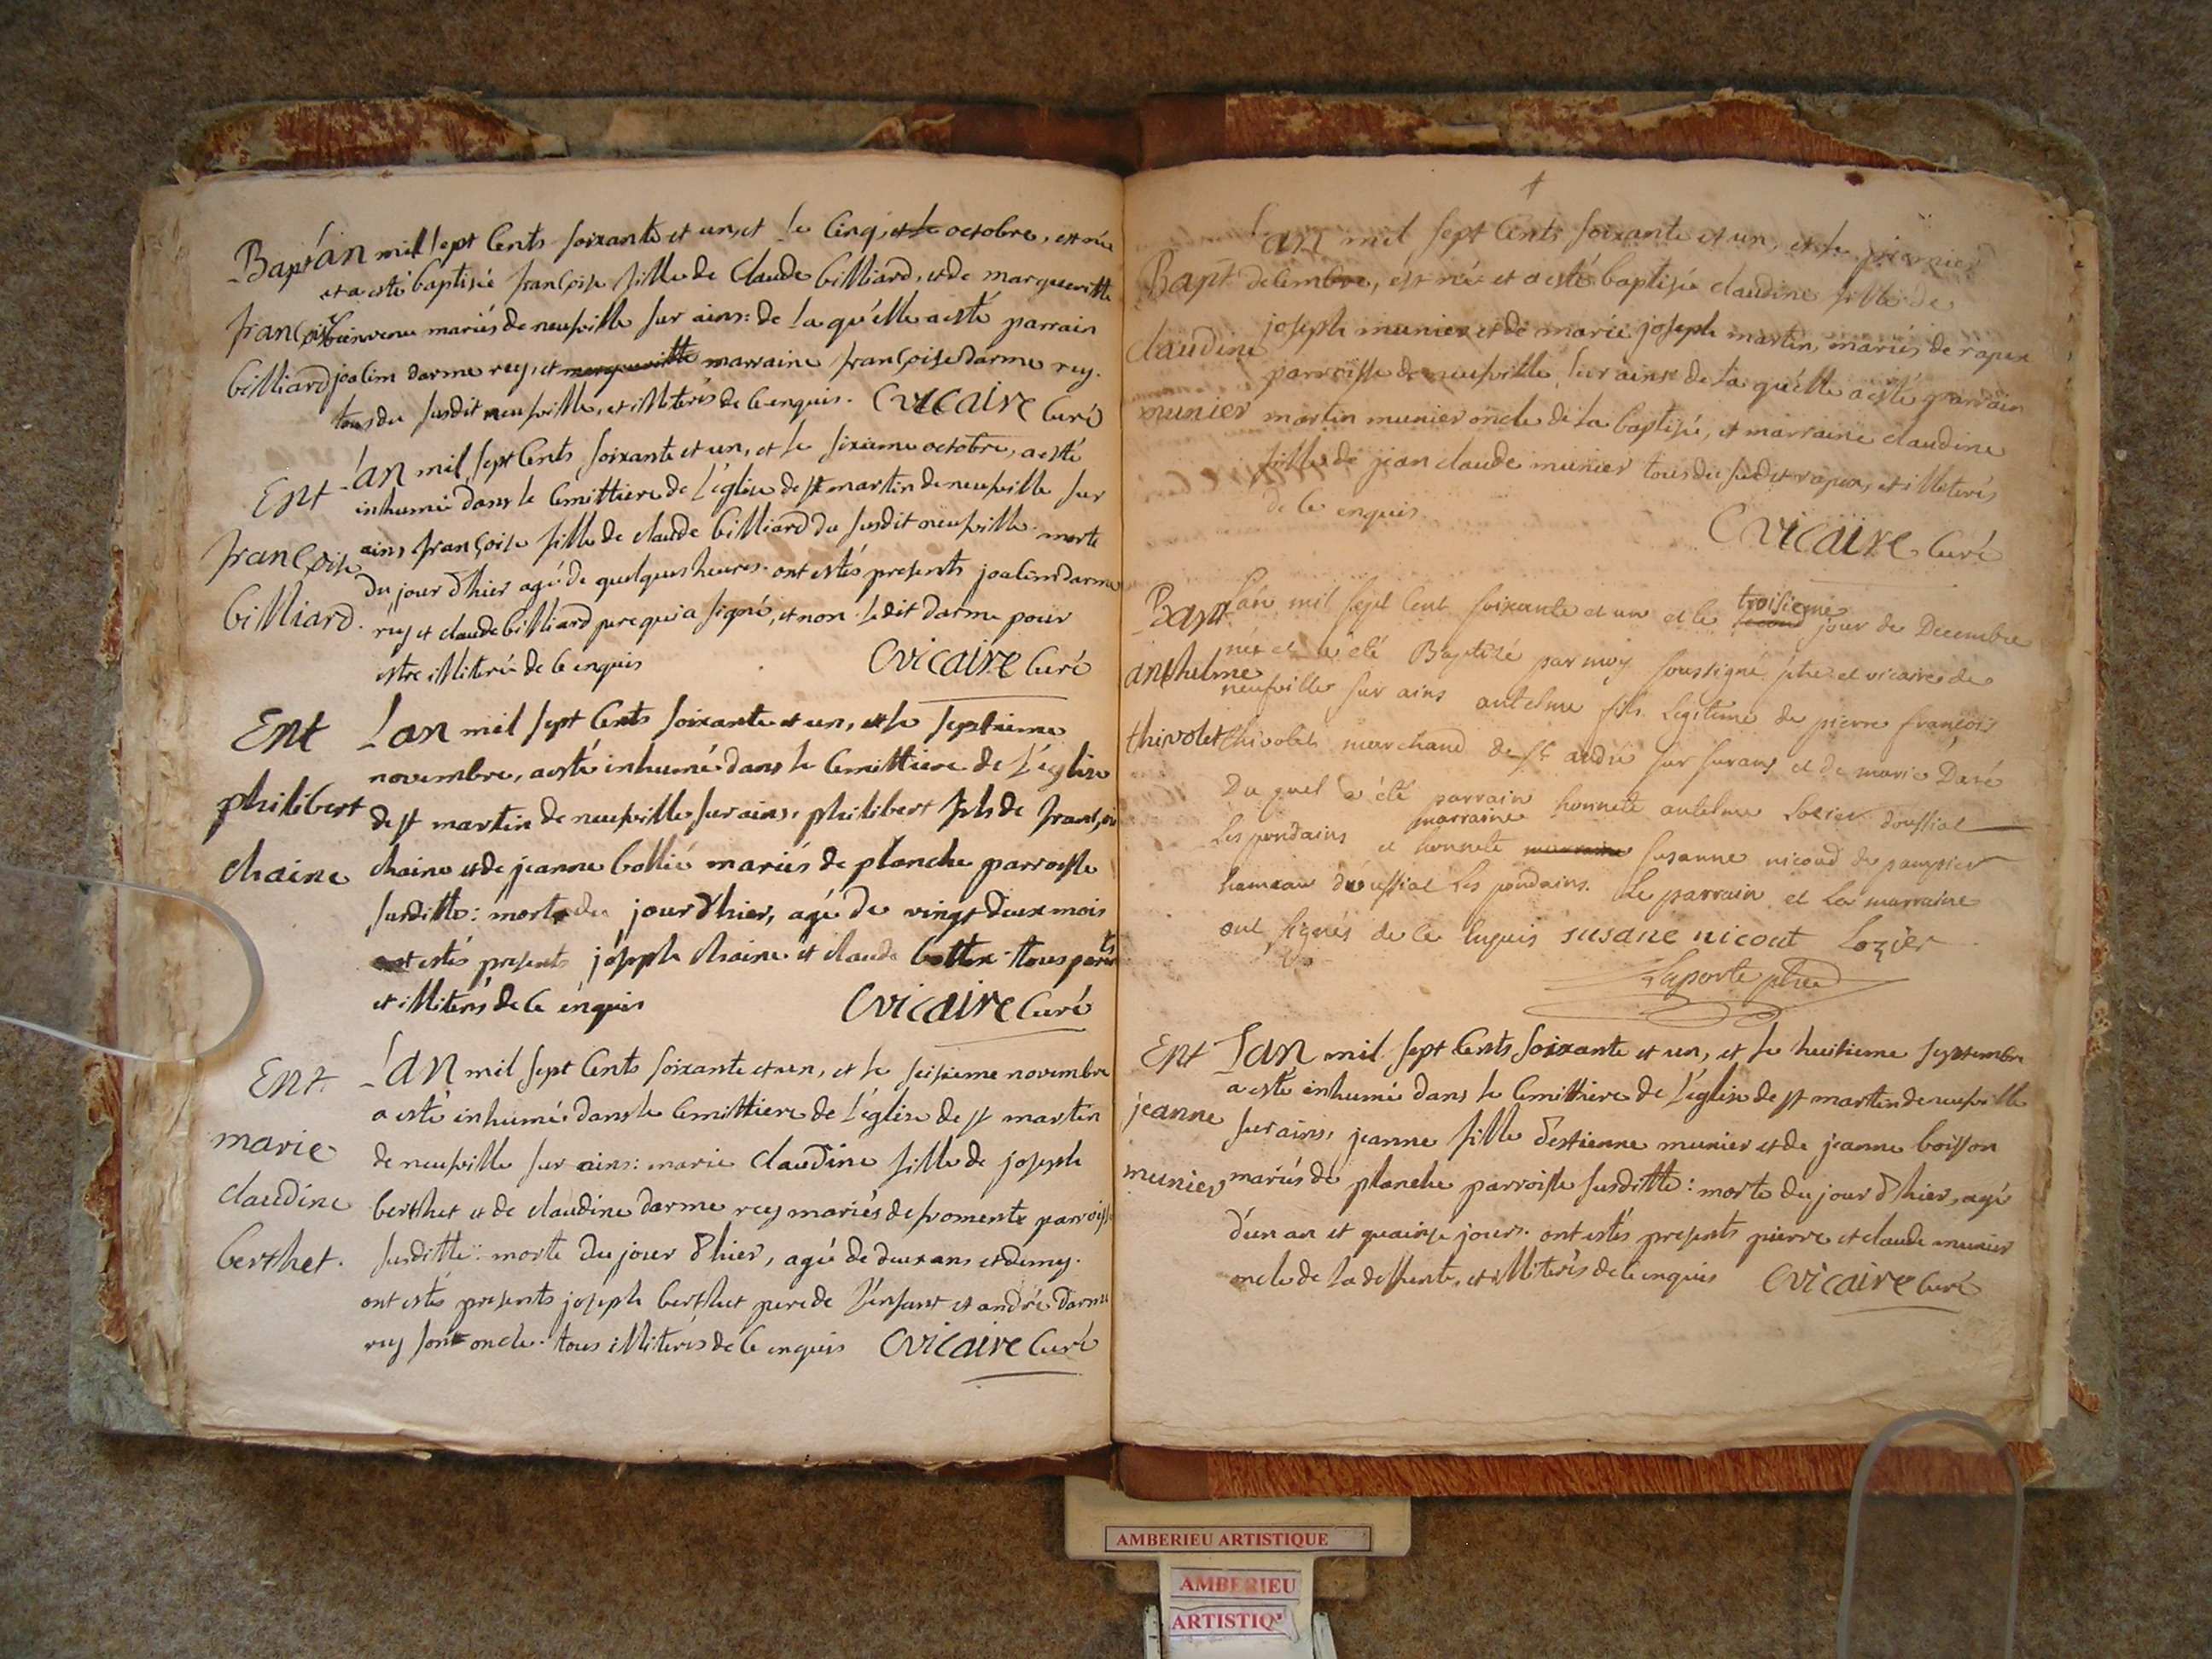 Bapt
françoise
billiard
L'an mil sept Cents soixante et un, et le Cinq et le octobre, est née
et a esté baptisée françoise fille de Claude billiard, et de margueritte
bienvenu mariés de neufville sur ains: de la qu'elle a esté parrain
joalim darme rey, et margueritte marraine françoise darme rey.
tous du susdit neufville, et illiterés de Ce enquis. Cvicaire Curé
Ent
françoise
billiard.
L'an mil sept Cents soixante et un, et le sixieme octobre, a esté
inhumée dans le Cemittiere de l'église de st martin de neufville sur
ains françoise fille de claude billiard du susdit neufville. morte
du jour d'hier agé de quelques heures. ont estés presents joalim darme
rey et claude billiard pere qui a signé, et non ledit darme pour
estre illiteré de Ce enquis Cvicaire Curé
Ent
philibert
chaine
L'an mil sept Cents soixante et un, et le septieme
novembre, a esté inhumé dans le Cemittiere de l'église
de st martin de neufville sur ains, philibert fils de
chaine et de jeanne bollié mariés de planche parroisse
susditte: mort du jour d'hier, agé de vingt deux mois
ont estés presents joseph chaine et claude tous
et illiterés de Ce enquis Cvicaire Curé
Ent.
marie
claudine
berthet.
L'an mil sept Cents soixante et un, et le seisieme novembre
a esté inhumée dans le Cemittiere de l'église de st martin
de neufville sur ains: marie claudine fille de joseph
berthet et de claudine darme rey mariés de fromente parroisse
susditte: morte du jour d'hier, agé de deux ans et demy.
ont estés presents joseph berthet pere de l'enfant et andré darme
rey son oncle. tous illiterés de Ce enquis Cvicaire Curé
Bapt
claudine
munier
L'an mil sept Cents soixante et un, et le premier
decembre, est née et a esté baptisée claudine fille de
joseph munier et de marie joseph martin, mariés de rapan
parroisse de neufville sur ains: de la qu'elle a esté parrain
martin munier oncle de la baptisée, et marraine claudine
fille de jean claude munier tous du susdit rapan, et illiterés
de Ce enquis.
Cvicaire Curé
Bapt
anthelme
thivolet
L'an mil sept Cent soixante et un et le second troisieme jour de Decembre
nét et a été Baptizé par moy soussigné ptre et vicaire de
neufville sur ains antelme fils légitime de pierre françois
thivolet marchand de st andré sur surans et de marie
Du quel a été parrain honnete antelme Lozier doussiat
Les pondains et honnete marraine marraine susanne nicoud de
hameau d'oussiat Les pondains. Le parrain et La marraine
ont signés de Ce Enquis susane nicout Lozier
Laporte ptre
Ent
jeanne
munier
L'an mil sept Cents soixante et un, et le huitieme septembre
a esté inhumée dans le Cemittiere de l'église de st martin de neufville
sur ains, jeanne fille d'estienne munier et de jeanne boisson
mariés de planche parroisse susditte: morte du jour d'hier, agé
d'un an et quainse jours. ont estés presents pierre et claude munier
oncle de la deffunte, et illiterés de Ce enquis Cvicaire Curé
AMBERIEU ARTISTIQUE
AMBERIEU
ARTISTIQ